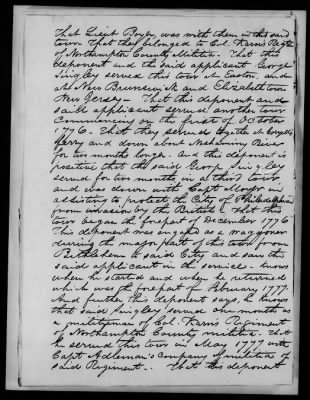 That Lieut Boyer was with them in the said
town That they belonged to Col. Karns Regt
of Northampton County Militia. That this
deponent and the said applicant George
Kingley served this tour at Easton, and
at New Brunswick and Elizabethtown
New Jersey — That this deponent and
said applicant served another tour
Commencing on the first of October
1776. That they served together at
Ferry and down about Neshaminy River
for two months longer. and this deponent is
positive that the said George Kingley
served for two months in a third tour
and was down with Capt in
assisting to protect the City of Philadelphia
from invasion by the British. That this
tour began the forepart of December 1776
This deponent was engaged as a waggoner
during the major part of this tour from
Bethlehem to said City and saw the
said applicant in the service. knows
when he started and when he returned
which was the forepart of February 1777.
And further this deponent says, he knows
that said Kingley served one month as
a militiaman of Col. Karns Regiment
of Northampton County militia. That
he served this tour in May 1777 with
Capt Adleman's Company of militia of
said Regiment. . That this deponent